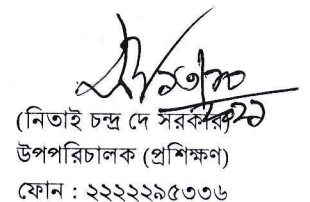 (নিতাই চন্দ্র দে সরকার)
উপপরিচালক (প্রশিক্ষণ)
ফোন : ২২২২২৯৫৩৩৬